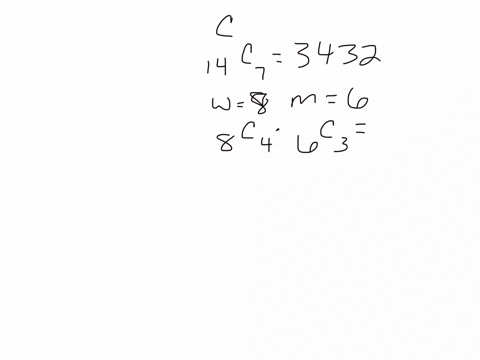 C
14 C 7 = 3432
w = 8 m = 6
8 C 4 · 6 C 3 =